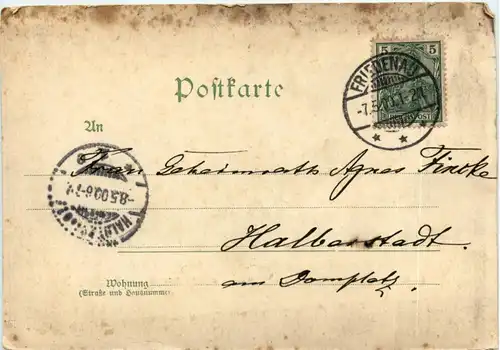 5 5
REICHSPOST
FRIEDENAU
-7.5.00.1-2N.
Postkarte
An
Frau Geheimrath Agnes Fincke
-8.5.00.6-7V.
Halberstadt.
am Domplatz.
Wohnung
(Straße und Hausnummer)